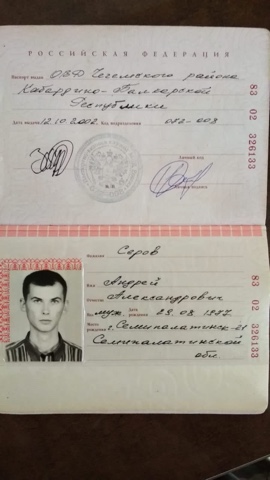 РОССИЙСКАЯ ФЕДЕРАЦИЯ
Паспорт выдан ОВД Чегемского района
Кабардино-Балкарской
Республики
Дата выдачи 12.10.2002 Код подразделения 072-003
Личный код
83 02 326133
Фамилия Серов
Имя Андрей
Отчество Александрович
Пол муж. Дата рождения 28.08.1977
Место рождения г. Семипалатинск-21
Семипалатинской
обл.
83 02 326133